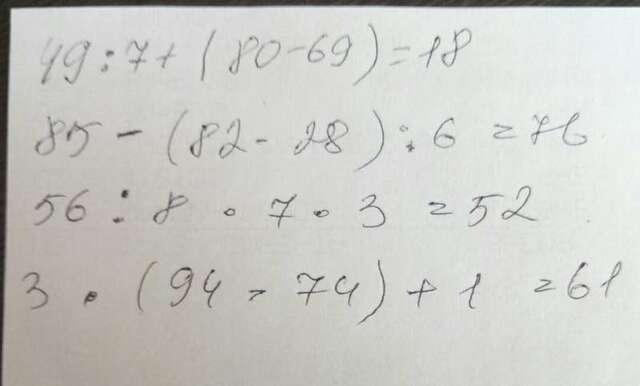 49:7+(80-69)=18
85-(82-28):6=76
56:8·7·3=52
3·(94-74)+1=61